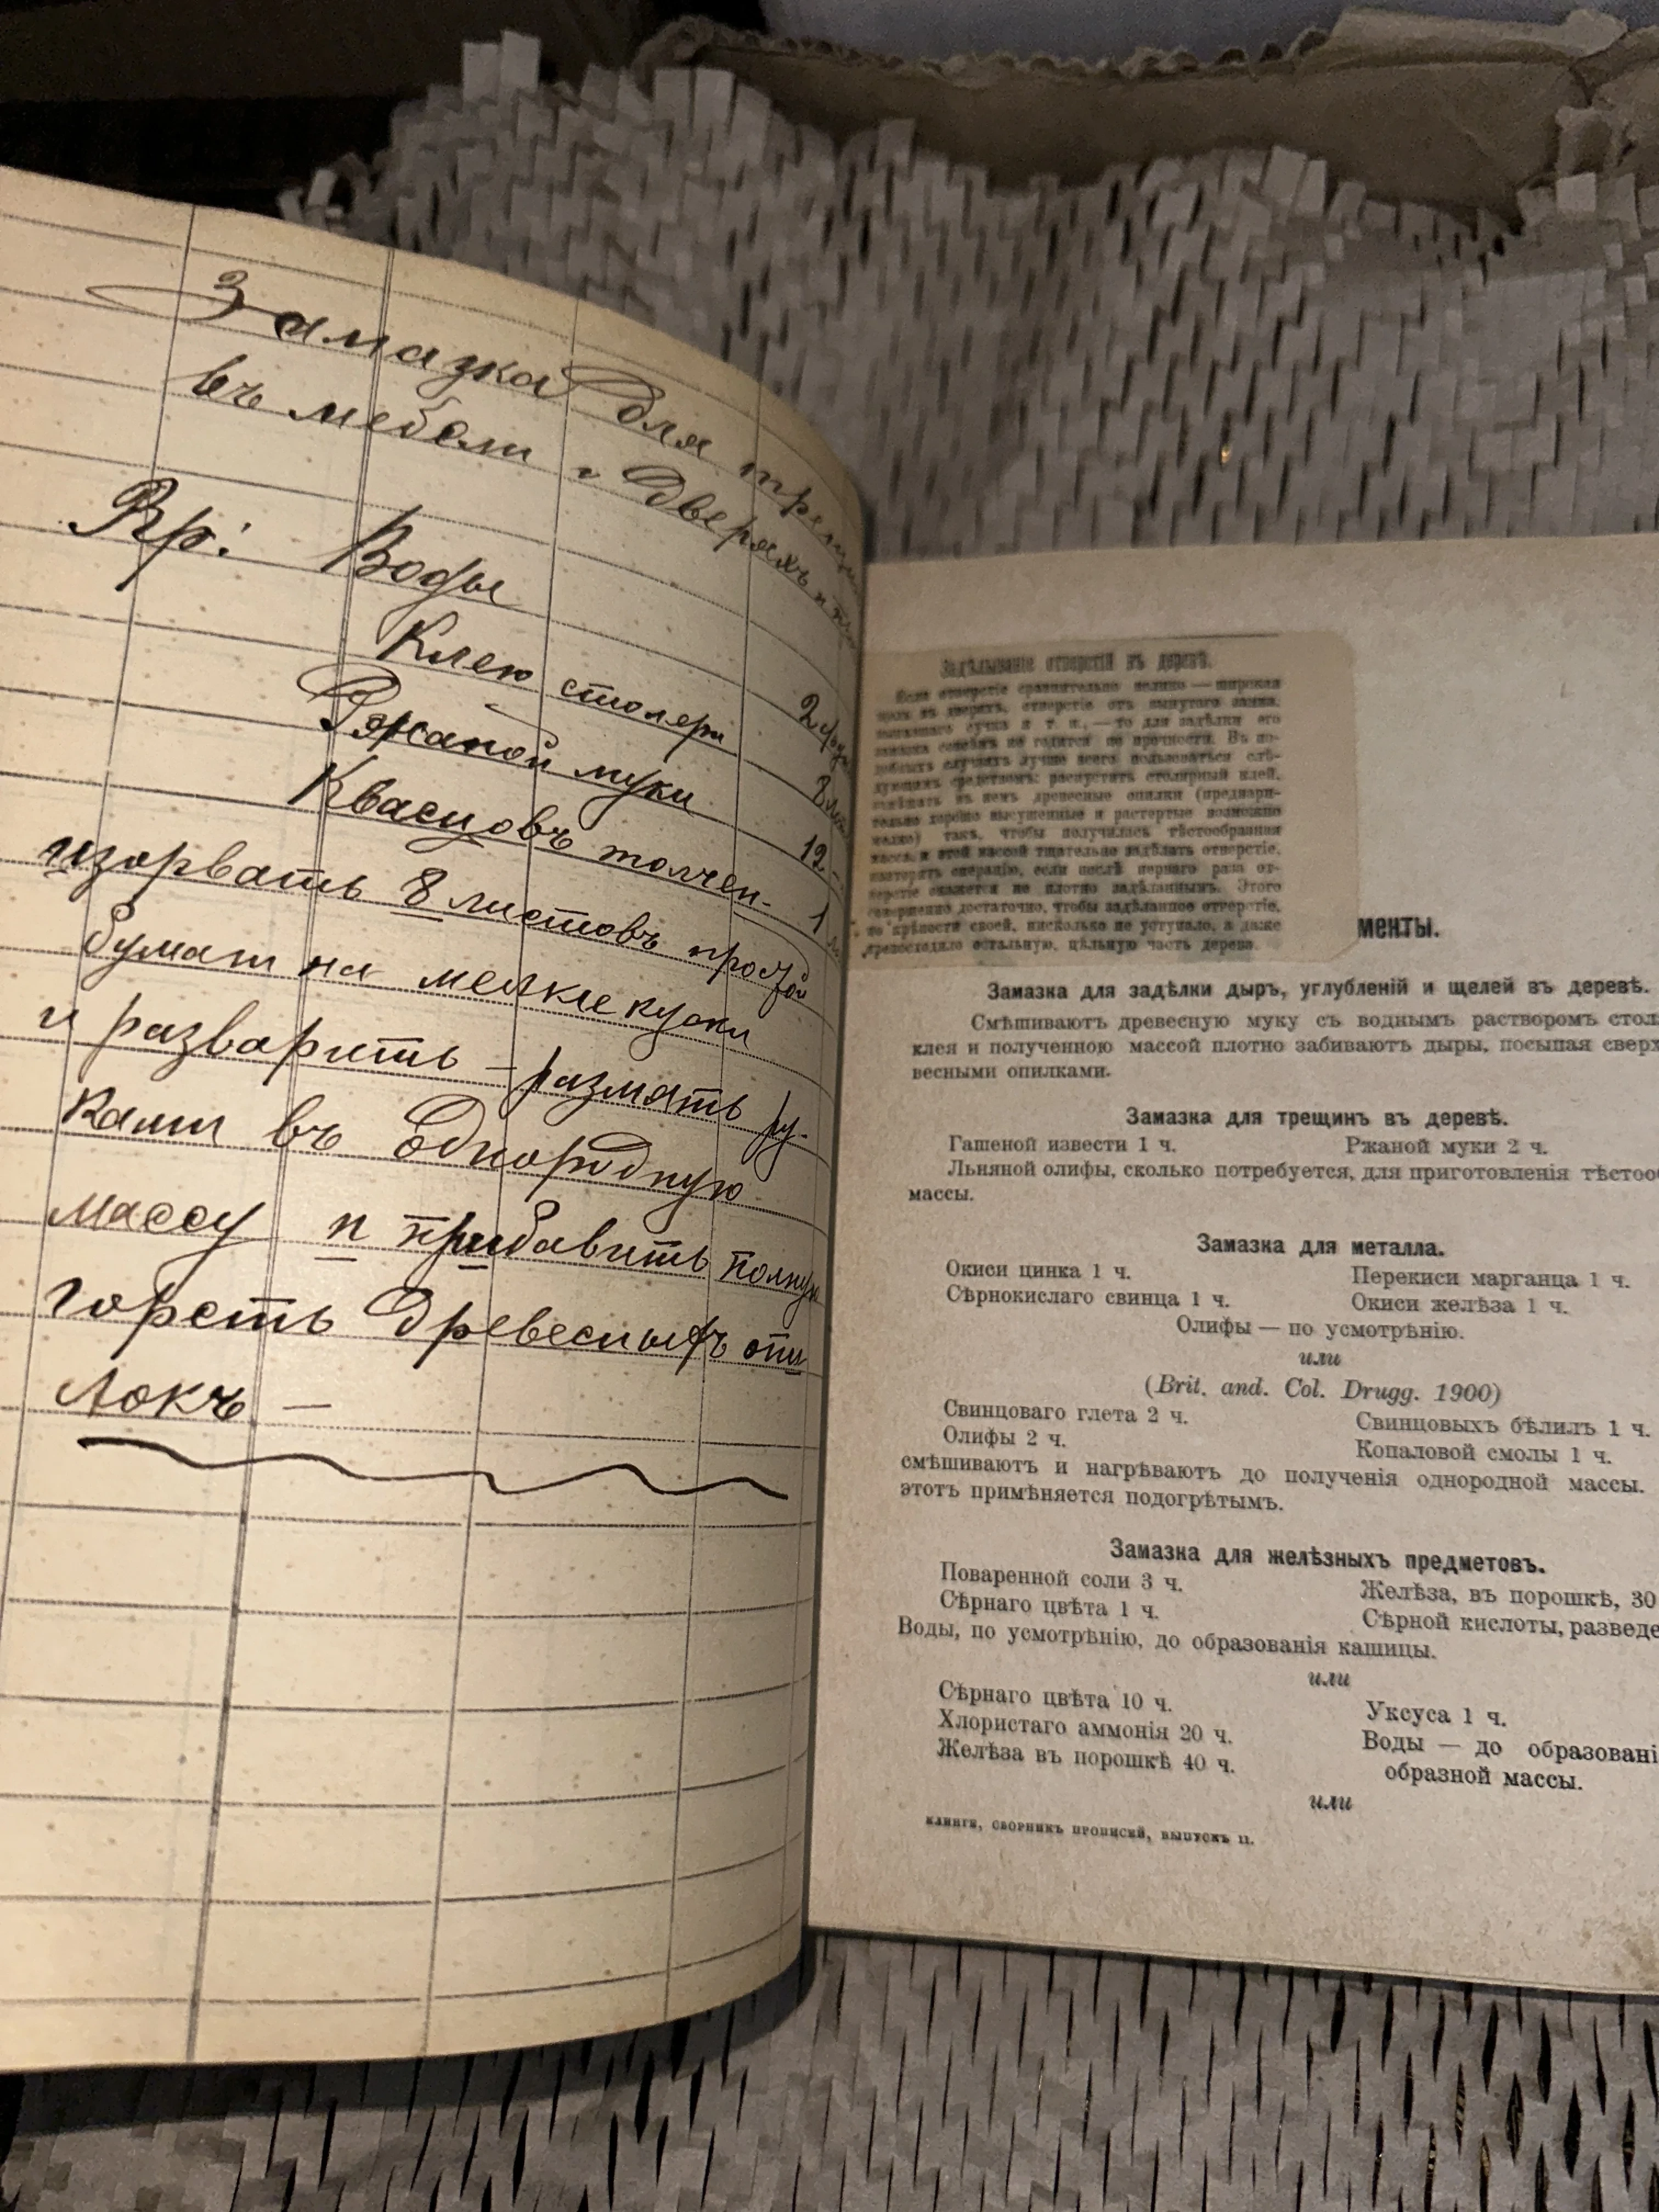 Замазка для трещин
въ мебели и дверяхъ и
Rp: Воды 2
Клею столярн 8
Ржаной муки 12 -
Квасцовъ толчен. 1
изорвать 8 листовъ простой
бумаги на мелкие куски
и разварить - размять ру-
ками въ однородную
массу и прибавить полную
горсть древесныхъ опи
локъ —
Задѣлываніе отверстій въ деревѣ.
Если отверстіе сравнительно велико — широкая
щель въ дверяхъ, отверстіе отъ вынутаго замка,
выпавшаго сучка и т. п., — то для задѣлки его
замазка совсѣмъ не годится по прочности. Въ по-
добныхъ случаяхъ лучше всего пользоваться слѣ-
дующимъ средствомъ: распустить столярный клей,
смѣшать въ немъ древесные опилки (предвари-
тельно хорошо высушенные и растертые возможно
мелко) такъ, чтобы получилась тѣстообразная
масса, и этой массой тщательно задѣлать отверстіе,
повторять операцію, если послѣ перваго раза от-
верстіе окажется не плотно задѣланнымъ. Этого
совершенно достаточно, чтобы задѣланное отверстіе,
по крѣпости своей, нисколько не уступало, а даже
превосходило остальную, цѣльную часть дерева.
менты.
Замазка для задѣлки дыръ, углубленій и щелей въ деревѣ.
Смѣшиваютъ древесную муку съ воднымъ растворомъ стол
клея и полученною массой плотно забиваютъ дыры, посыпая сверх
весными опилками.
Замазка для трещинъ въ деревѣ.
Гашеной извести 1 ч. Ржаной муки 2 ч.
Льняной олифы, сколько потребуется, для приготовленія тѣстоо
массы.
Замазка для металла.
Окиси цинка 1 ч. Перекиси марганца 1 ч.
Сѣрнокислаго свинца 1 ч. Окиси желѣза 1 ч.
Олифы — по усмотрѣнію.
или
(Brit. and. Col. Drugg. 1900)
Свинцоваго глета 2 ч. Свинцовыхъ бѣлилъ 1 ч.
Олифы 2 ч. Копаловой смолы 1 ч.
смѣшиваютъ и нагрѣваютъ до полученія однородной массы.
этотъ примѣняется подогрѣтымъ.
Замазка для желѣзныхъ предметовъ.
Поваренной соли 3 ч. Желѣза, въ порошкѣ, 30
Сѣрнаго цвѣта 1 ч. Сѣрной кислоты, разведе
Воды, по усмотрѣнію, до образованія кашицы.
или
Сѣрнаго цвѣта 10 ч. Уксуса 1 ч.
Хлористаго аммонія 20 ч. Воды — до образовані
Желѣза въ порошкѣ 40 ч. образной массы.
или
КЛИНГЕ, СБОРНИКЪ ПРОПИСЕЙ, ВЫПУСКЪ II.